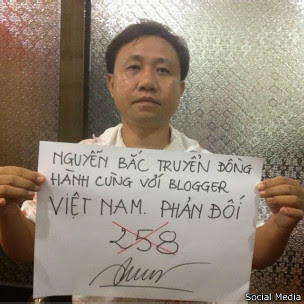 NGUYỄN BẮC TRUYỂN ĐỒNG
HÀNH CÙNG VỚI BLOGGER
VIỆT NAM. PHẢN ĐỐI
258
Social Media